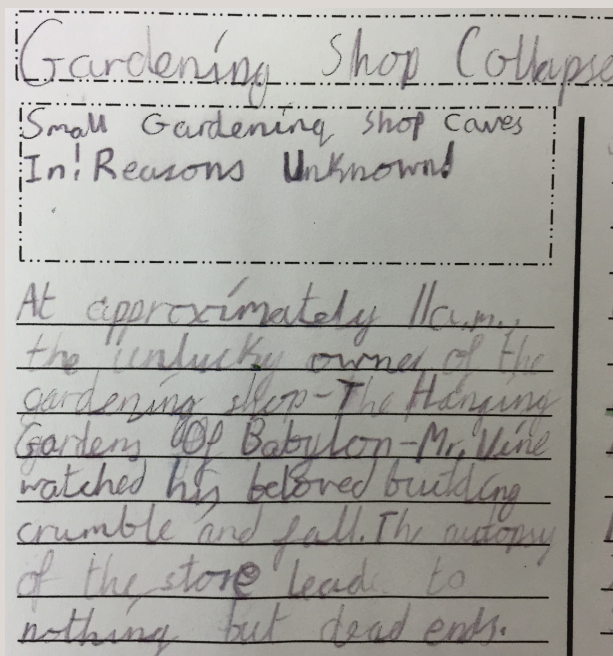 Gardening Shop Collapse
Small Gardening Shop Caves
In! Reasons Unknown!
At approximately 11a.m.,
the unlucky owner of the
gardening shop-The Hanging
Gardens Of Babylon-Mr. Vine
watched his beloved building
crumble and fall. The autopsy
of the store lead to
nothing but dead ends.